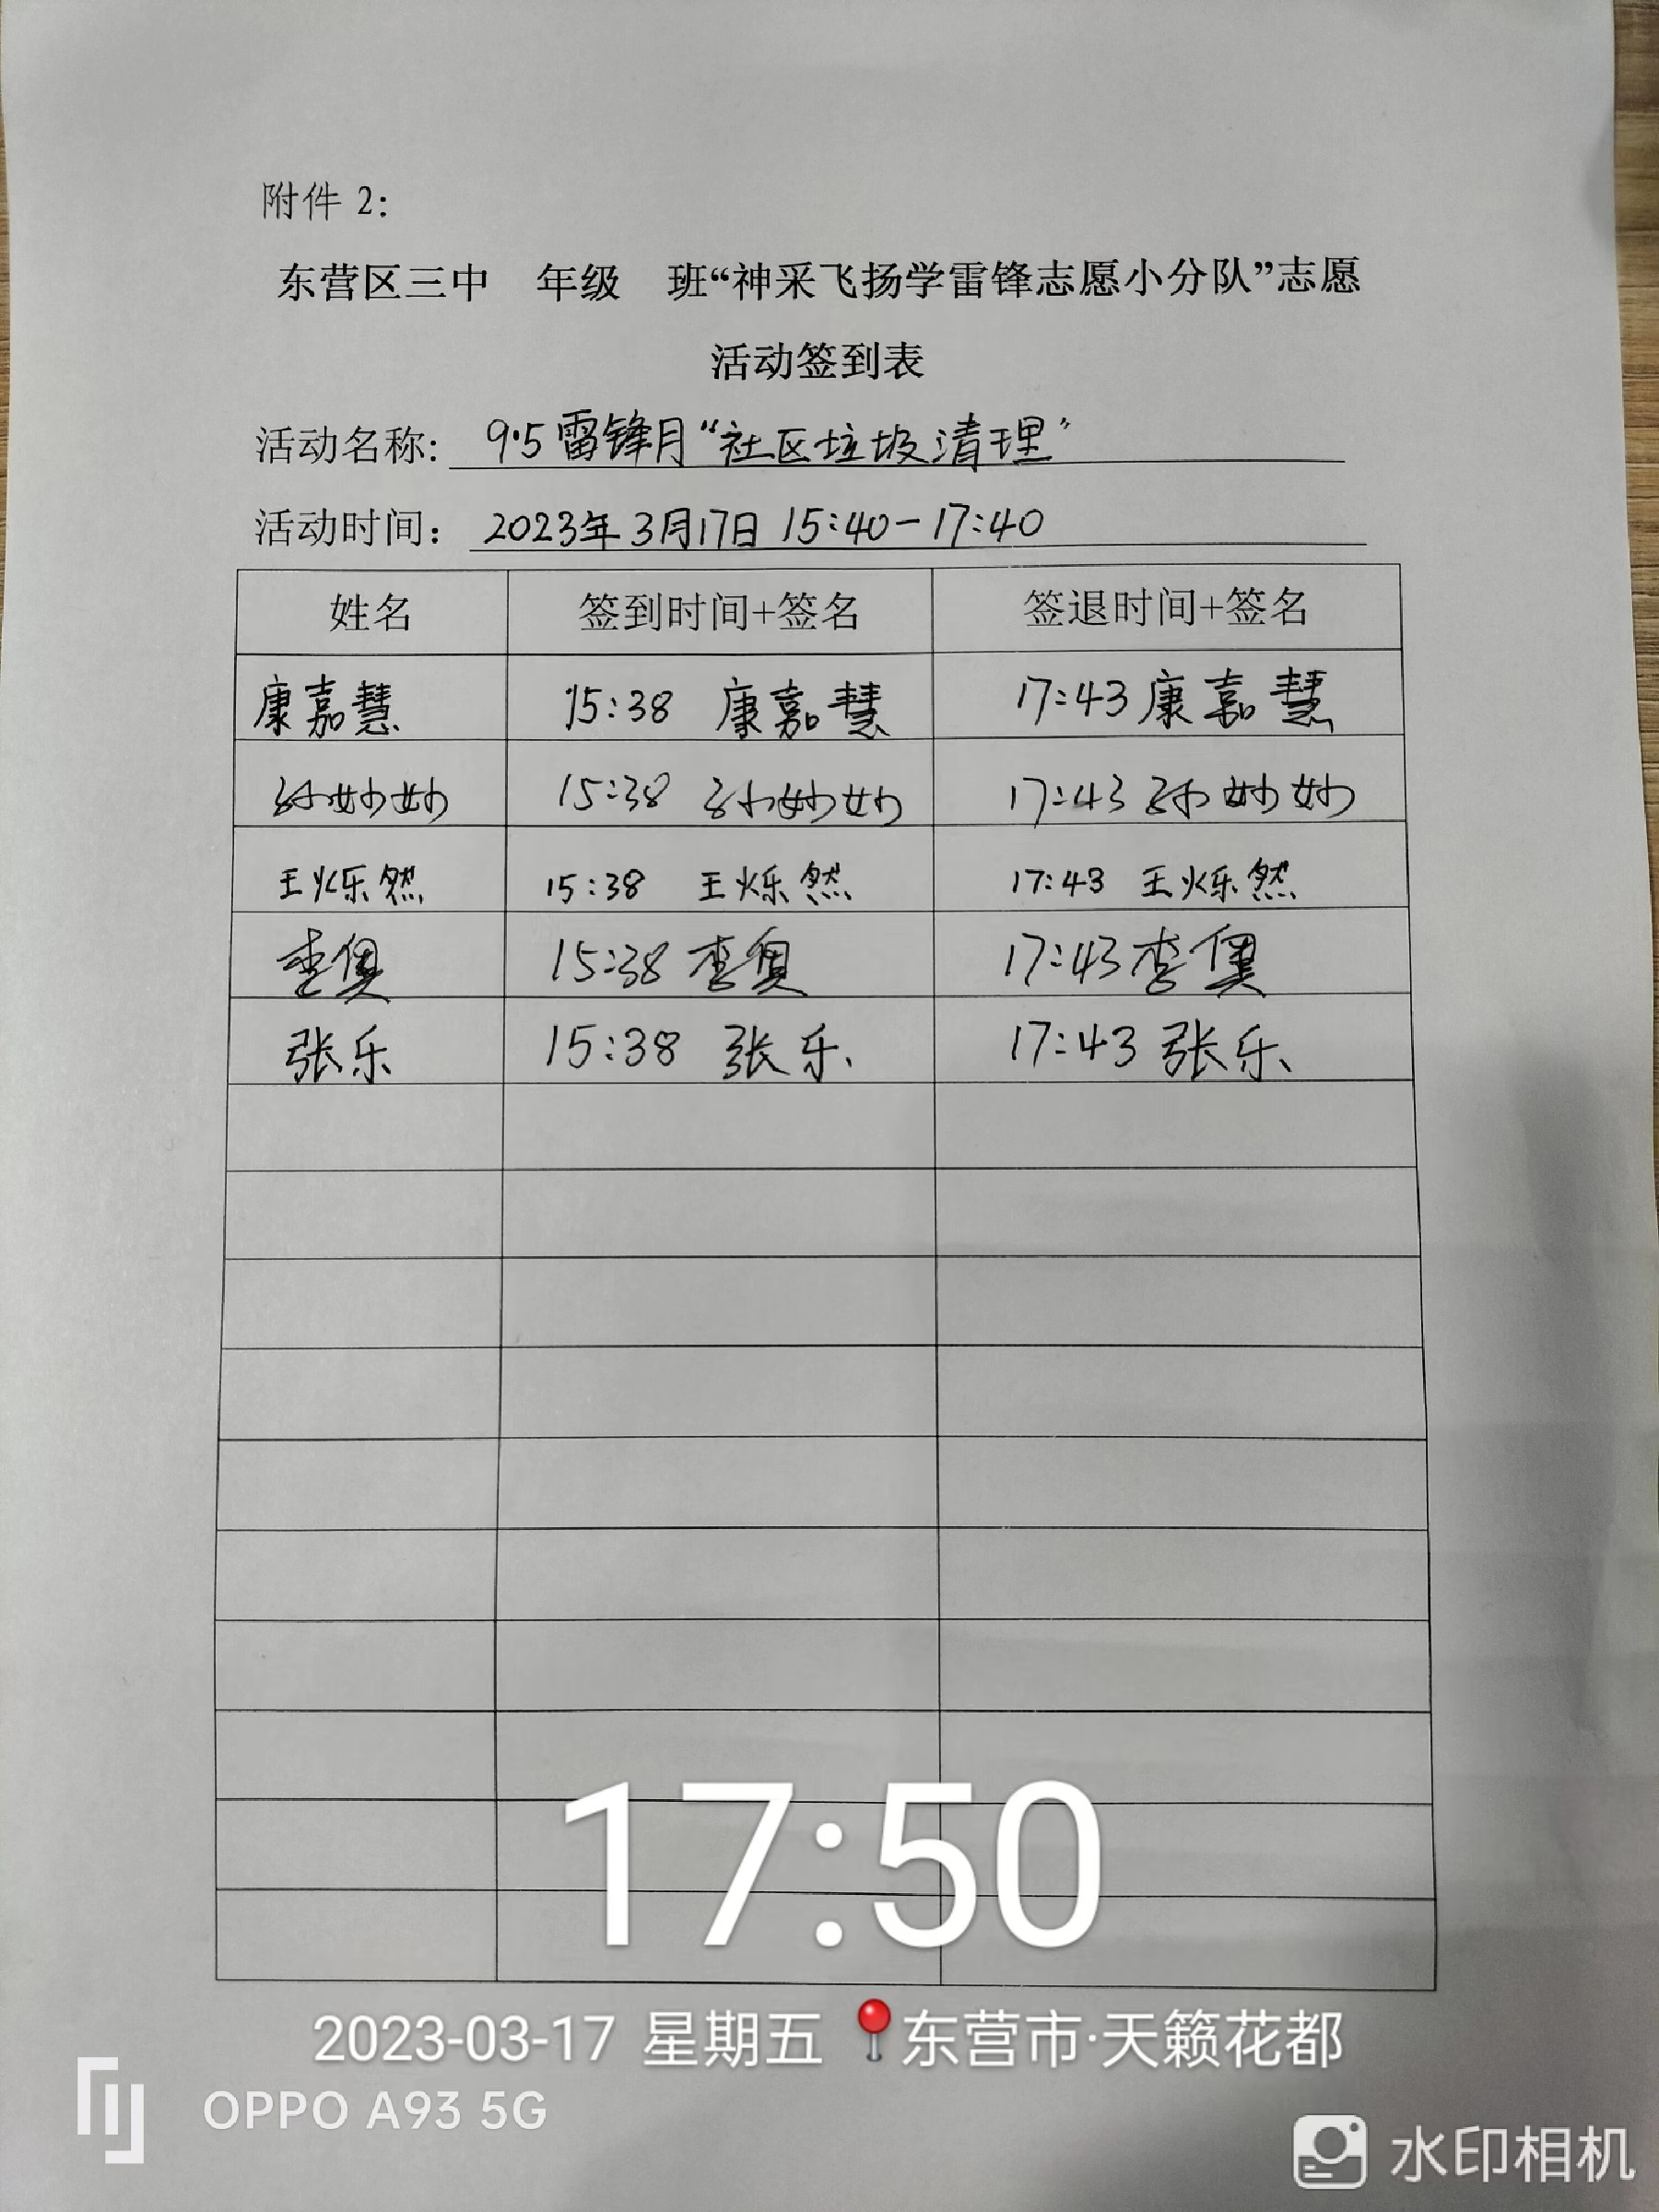 附件 2：
东营区三中 年级 班“神采飞扬学雷锋志愿小分队”志愿
活动签到表
活动名称： 9·5雷锋月“社区垃圾清理”
活动时间： 2023年3月17日 15:40-17:40
姓名 签到时间+签名 签退时间+签名
康嘉慧 15:38 康嘉慧 17:43 康嘉慧
孙妙妙 15:38 孙妙妙 17:43 孙妙妙
王烁然 15:38 王烁然 17:43 王烁然
李 15:38 李 17:43 李
张乐 15:38 张乐 17:43 张乐
17:50
2023-03-17 星期五 东营市·天籁花都
OPPO A93 5G
水印相机